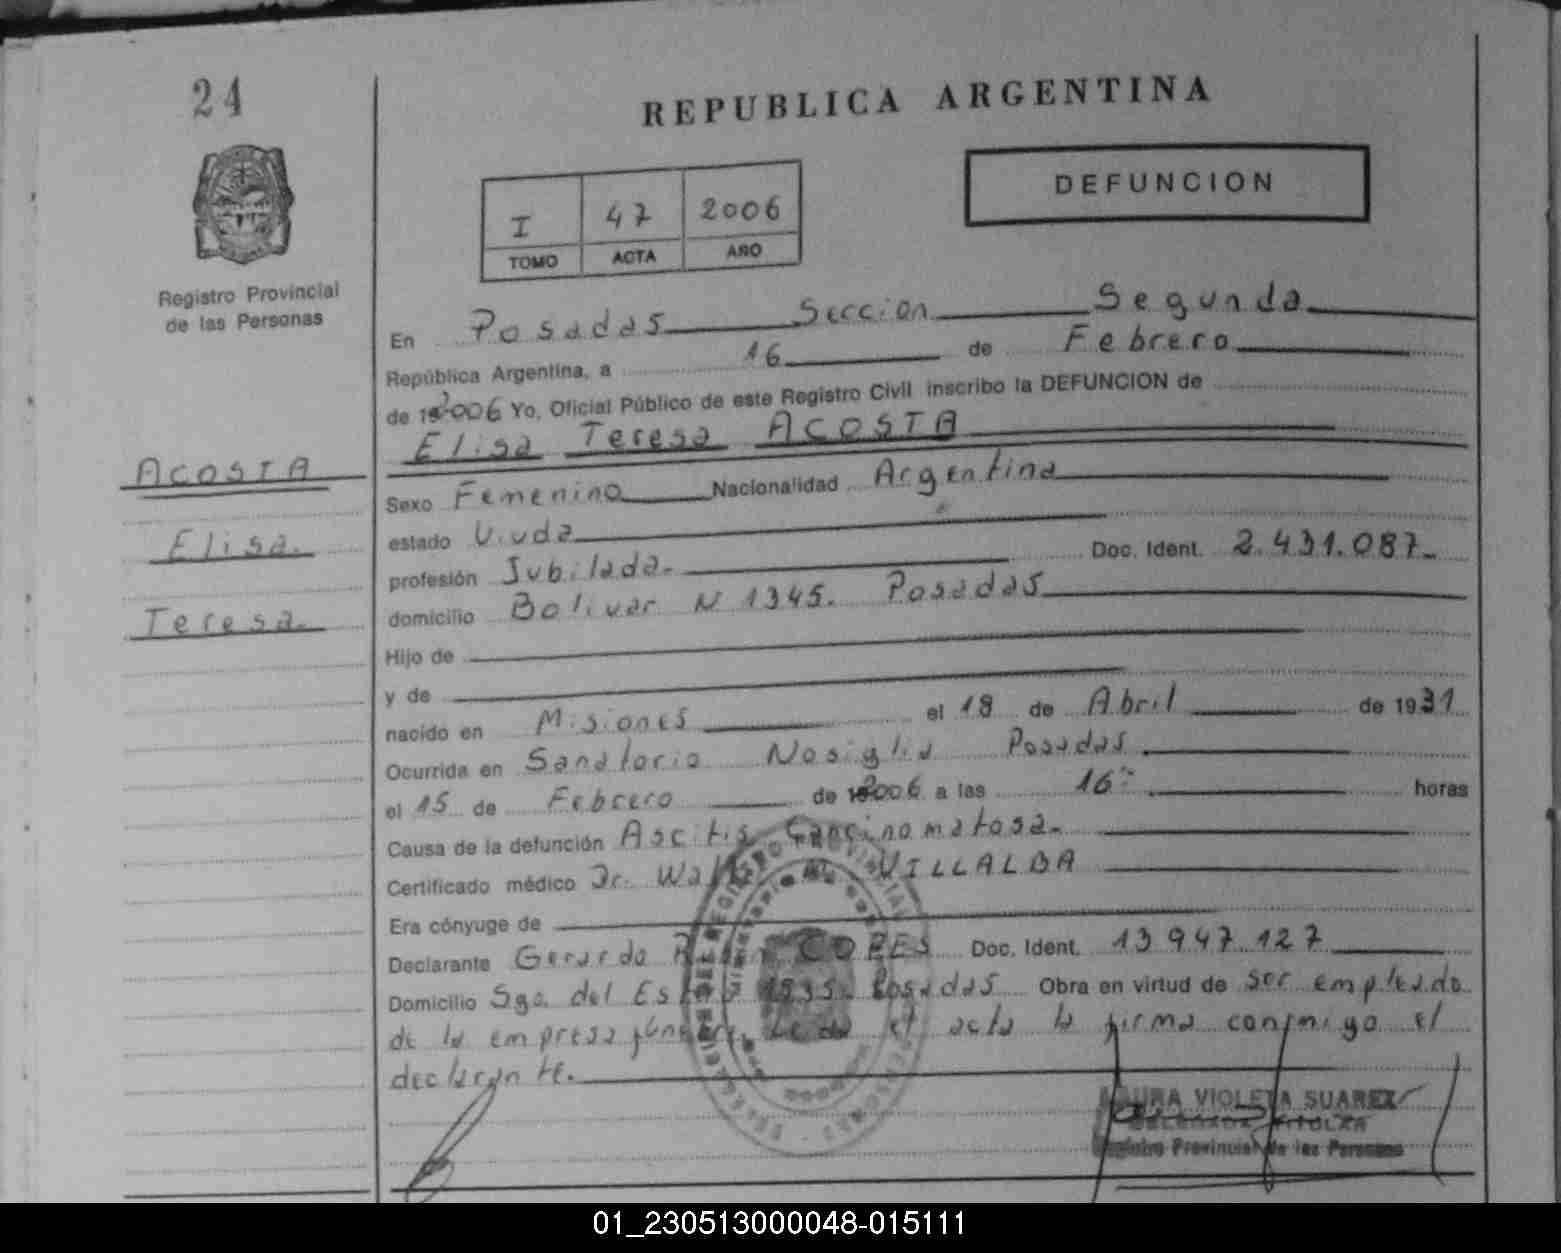 24
REPUBLICA ARGENTINA
DEFUNCION
I 47 2006
TOMO ACTA AÑO
Registro Provincial
de las Personas
En Posadas Seccion Segunda
República Argentina, a 16 de Febrero
de 2006 Yo, Oficial Público de este Registro Civil inscribo la DEFUNCION de
Elisa Teresa ACOSTA
ACOSTA
Elisa.
Teresa.
Sexo Femenino Nacionalidad Argentina
estado Viuda
profesión Jubilada. Doc. Ident. 2.431.087.
domicilio Bolivar N 1345. Posadas
Hijo de
y de
nacido en Misiones el 18 de Abril de 1931
Ocurrida en Sanatorio Nosiglia Posadas
el 15 de Febrero de 2006 a las 16 horas
Causa de la defunción Ascitis Carcinomatosa.
Certificado médico Dr. VILLALBA
Era cónyuge de
Declarante Gerardo Doc. Ident. 13 947 127
Domicilio Sgo. del Posadas Obra en virtud de ser empleado
de la empresa el acta la firma conmigo el
declarante.
LAURA VIOLETA SUAREZ
DELEGADA TITULAR
Registro Provincial de las Personas
01_230513000048-015111